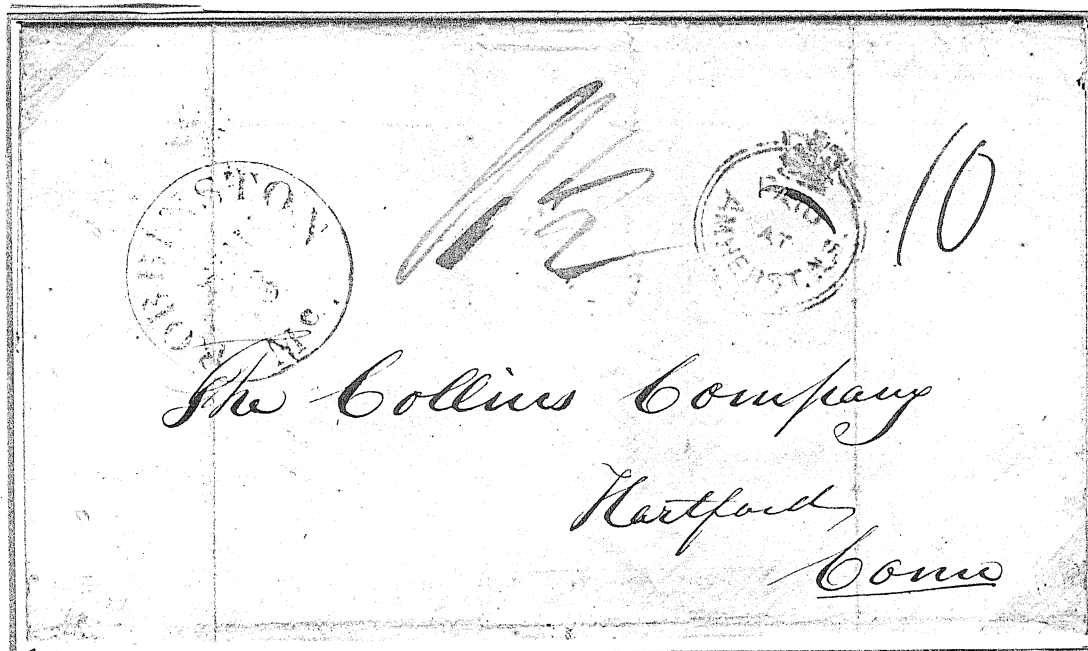 ROBBINSTON Me.
PAID AT AMHERST. N.S.
10
The Collins Company
Hartford
Conn